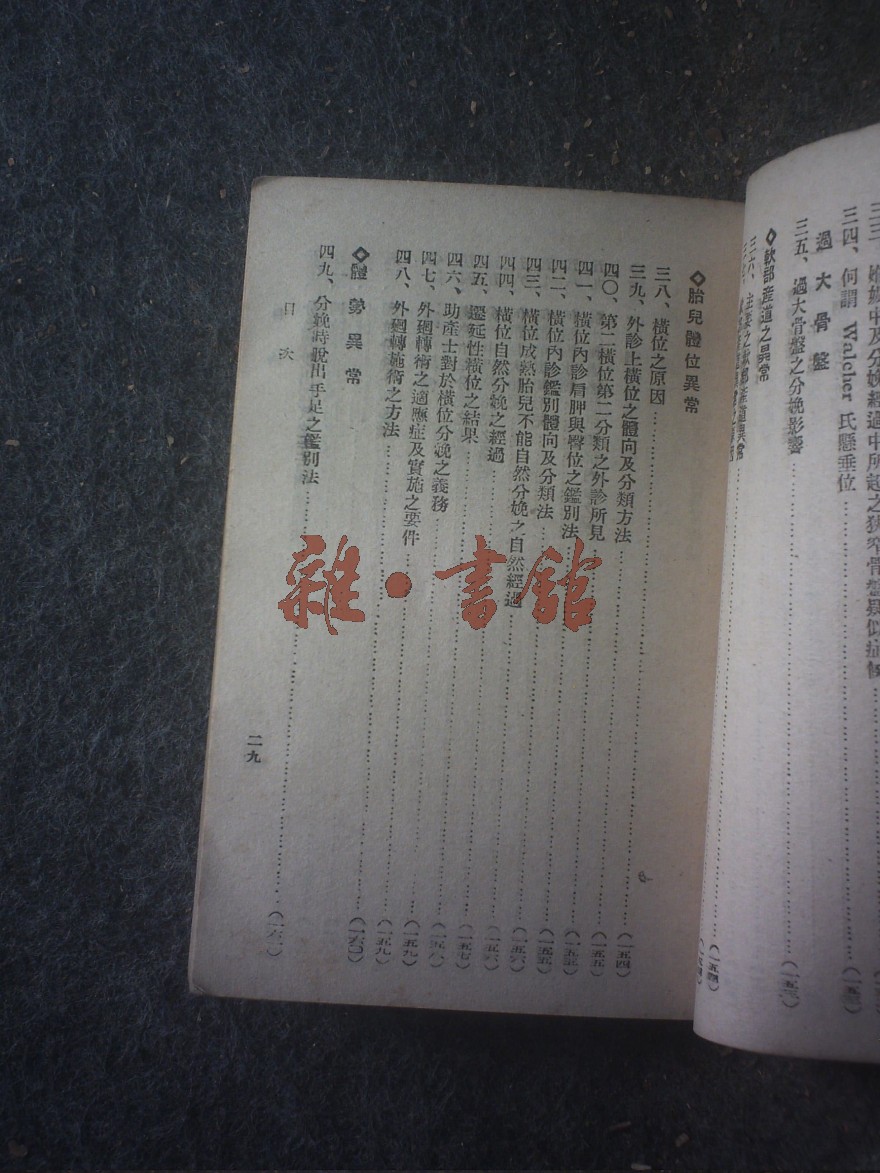 妊娠中及分娩經過中所起之狹窄骨盤疑似症候
三四、何謂 Walcher 氏懸垂位
過大骨盤
三五、過大骨盤之分娩影響……(一五三)
◇軟部產道之異常
三六、主要之軟部產道異常……(一五四)
◇胎兒體位異常
三八、橫位之原因……(一五四)
三九、外診上橫位之體向及分類方法……(一五五)
四〇、第二橫位第二分類之外診所見……(一五五)
四一、橫位內診肩胛與臀位之鑑別法……(一五五)
四二、橫位內診鑑別體向及分類法……(一五六)
四三、橫位成熟胎兒不能自然分娩之自然經過……(一五六)
四四、橫位自然分娩之經過……(一五七)
四五、遷延性橫位之結果……(一五八)
四六、助產士對於橫位分娩之義務……(一五九)
四七、外廻轉術之適應症及實施之要件……(一五九)
四八、外廻轉施術之方法……(一六〇)
◇體勢異常
四九、分娩時脫出手足之鑑別法……(一六一)
目次
二九
雜·書館